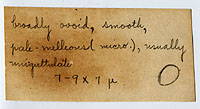 broadly ovoid, smooth,
pale-melleous (micro.), usually
uniguttulate
7-9 x 7 µ